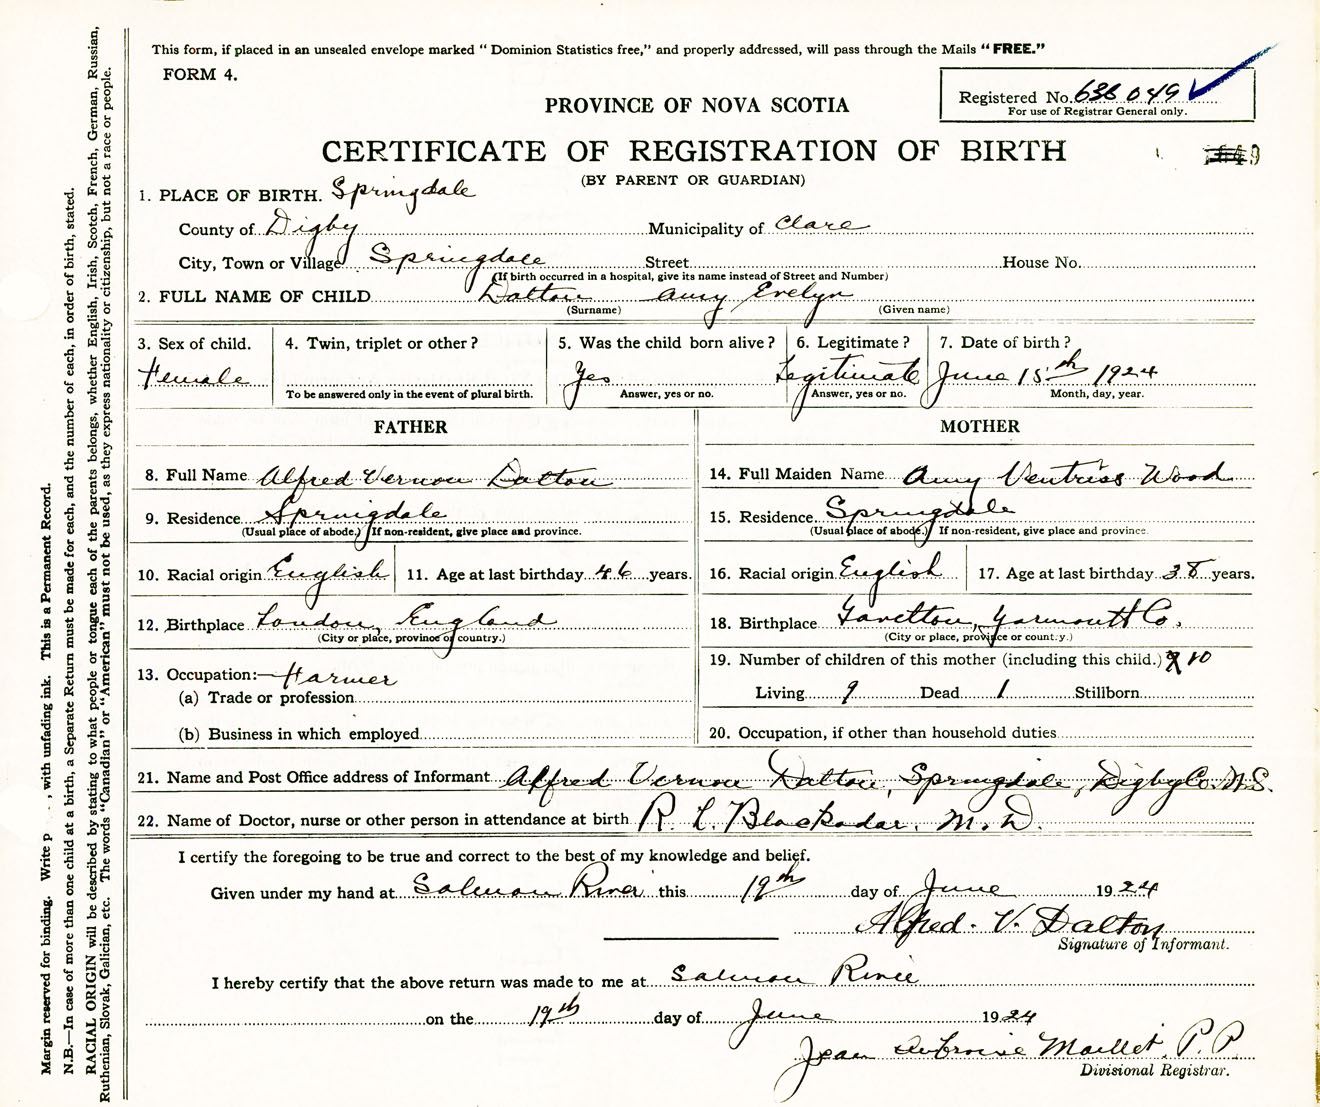 This form, if placed in an unsealed envelope marked "Dominion Statistics free," and properly addressed, will pass through the Mails "FREE."
FORM 4.
Registered No. 636 049
For use of Registrar General only.
PROVINCE OF NOVA SCOTIA
CERTIFICATE OF REGISTRATION OF BIRTH
(BY PARENT OR GUARDIAN)
1. PLACE OF BIRTH. Springdale
County of Digby Municipality of Clare
City, Town or Village Springdale Street House No.
(If birth occurred in a hospital, give its name instead of Street and Number)
2. FULL NAME OF CHILD Dalton Amy Evelyn
(Surname) (Given name)
3. Sex of child. 4. Twin, triplet or other? 5. Was the child born alive? 6. Legitimate? 7. Date of birth?
Female Yes Legitimate June 15th 1924
To be answered only in the event of plural birth. Answer, yes or no. Answer, yes or no. Month, day, year.
FATHER MOTHER
8. Full Name Alfred Vernon Dalton 14. Full Maiden Name Amy Ventriss Wood
9. Residence Springdale 15. Residence Springdale
(Usual place of abode.) If non-resident, give place and province. (Usual place of abode.) If non-resident, give place and province.
10. Racial origin English 11. Age at last birthday 46 years. 16. Racial origin English 17. Age at last birthday 38 years.
12. Birthplace London, England 18. Birthplace Yarmouth Co.
(City or place, province or country.) (City or place, province or country.)
19. Number of children of this mother (including this child.) 10
13. Occupation:— Farmer
(a) Trade or profession Living 9 Dead 1 Stillborn
(b) Business in which employed 20. Occupation, if other than household duties
21. Name and Post Office address of Informant Alfred Vernon Dalton, Springdale, Digby Co. N.S.
22. Name of Doctor, nurse or other person in attendance at birth R. L. Blackadar. M.D.
I certify the foregoing to be true and correct to the best of my knowledge and belief.
Given under my hand at Salmon River this 19th day of June 1924
Alfred. V. Dalton
Signature of Informant.
I hereby certify that the above return was made to me at Salmon River
on the 19th day of June 1924
Jean Ambroise Maillet. P.P.
Divisional Registrar.
Margin reserved for binding. Write , with unfading ink. This is a Permanent Record.
N.B.—In case of more than one child at a birth, a Separate Return must be made for each, and the number of each, in order of birth, stated.
RACIAL ORIGIN will be described by stating to what people or tongue each of the parents belongs, whether English, Irish, Scotch, French, German, Russian,
Ruthenian, Slovak, Galician, etc. The words "Canadian" or "American" must not be used, as they express nationality or citizenship, but not a race or people.